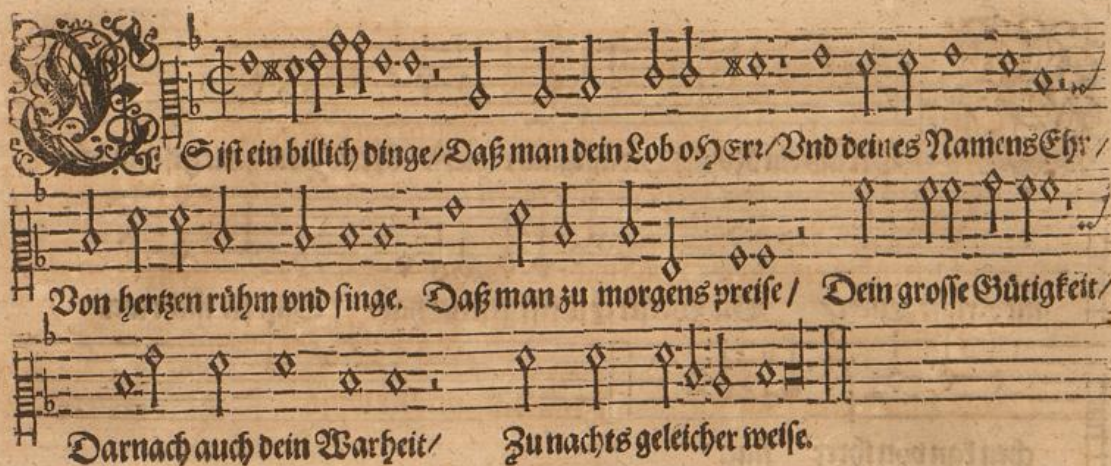 ES ist ein billich dinge/Daß man dein Lob o HErr/Vnd deines Namens Ehr/
Von hertzen rühm vnd singe. Daß man zu morgens preise/ Dein grosse Gütigkeit/
Darnach auch dein Warheit/ Zu nachts geleicher weise.